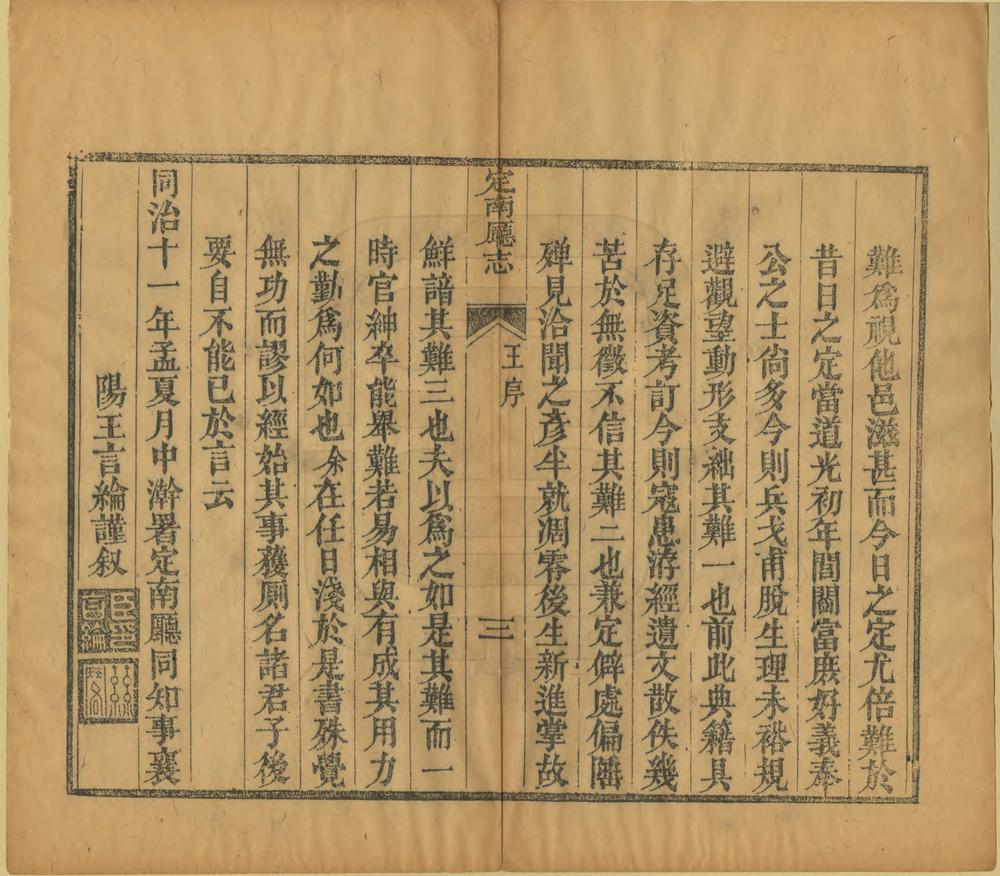 難爲視他邑滋甚而今日之定尤倍難於
昔日之定當道光初年閭閻富庶好義奉
公之士尙多今則兵戈甫脫生理未裕規
避觀望動形支絀其難一也前此典籍具
存足資考訂今則寇患洊經遺文散佚幾
苦於無徵不信其難二也兼定僻處偏隅
殫見洽聞之彥半就凋零後生新進掌故
定南廳志
王序
三
鮮諳其難三也夫以爲之如是其難而一
時官紳卒能舉難若易相與有成其用力
之勤爲何如也余在任日淺於是書殊覺
無功而謬以經始其事獲厠名諸君子後
要自不能已於言云
同治十一年孟夏月中澣署定南廳同知事襄
陽王言綸謹叙